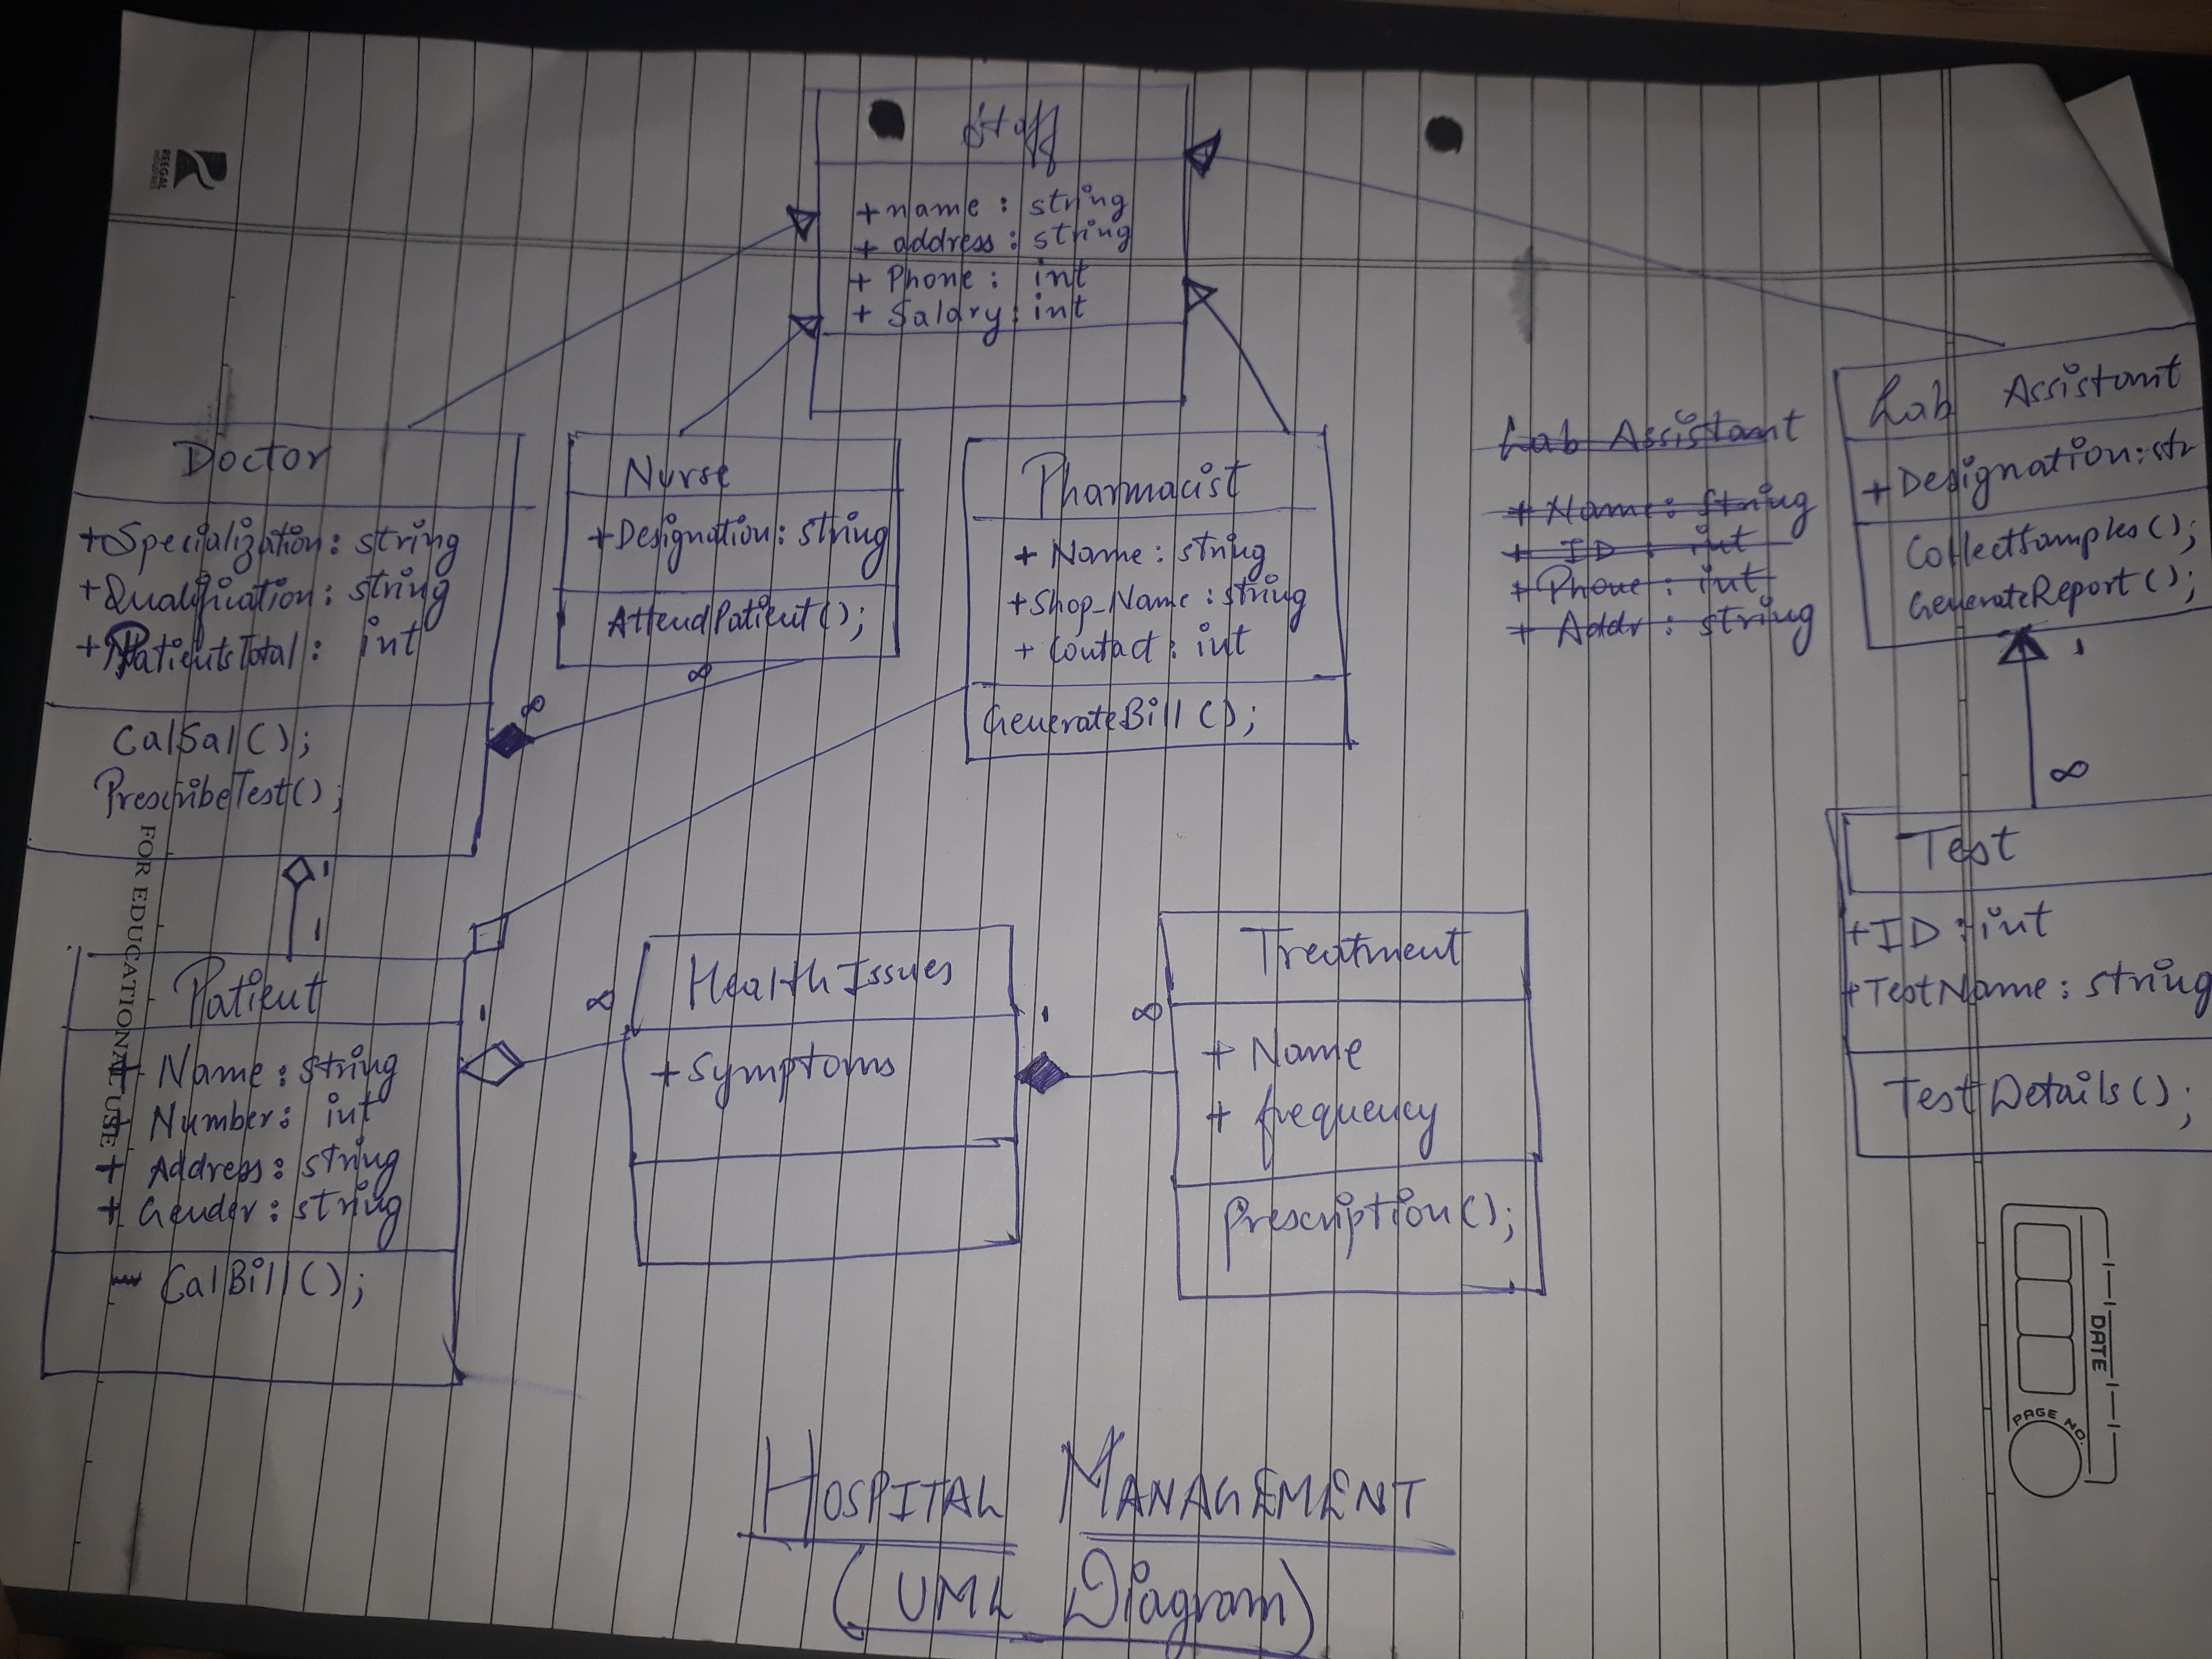 REEGAL
INDUSTRIES
Staff
+ name : string
+ address : string
+ Phone : int
+ Salary : int
Doctor
+Specialization : string
+Qualification : string
+PatientsTotal : int
CalSal();
PrescribeTest();
Nurse
+Designation : string
AttendPatient();
∞
∞
Pharmacist
+ Name : string
+Shop_Name : string
+ Contact : int
GenerateBill();
Lab Assistant
+ Name : string
+ ID : int
+ Phone : int
+ Addr : string
Lab Assistant
+Designation : str
CollectSamples();
GenerateReport();
1
∞
Test
+ID : int
+TestName : string
TestDetails();
1
1
Patient
+ Name : string
+ Number : int
+ Address : string
+ Gender : string
CalBill();
1
∞
Health Issues
+Symptoms
1
∞
Treatment
+ Name
+ frequency
Prescription();
FOR EDUCATIONAL USE
DATE
PAGE NO.
HOSPITAL MANAGEMENT
(UML Diagram)